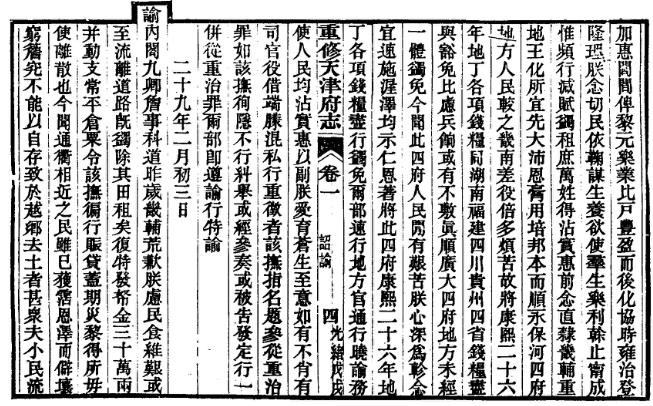 加惠閭閻俾黎元樂業比戶豐盈而後化協時雍治登
隆理朕念切民依鞠謀生養欲使羣生樂利榦止甯成
惟頻行減賦蠲租庶萬姓得沾實惠前念直隸畿輔重
地王化所宜先大沛恩膏用培邦本而順永保河四府
地方人民較之畿南差役倍多煩苦故將康熙二十六
年地丁各項錢糧同湖南福建四川貴州四省錢糧盡
與豁免比慮兵餉或有不敷眞順廣大四府地方未經
一體蠲免今聞此四府人民閒有艱苦朕心深爲軫念
宜速施渥澤均示仁恩著將此四府康熙二十六年地
丁各項錢糧盡行蠲免爾部速行地方官通行曉諭務
重修天津府志 卷一 詔諭 四 光緒戊戌
使人民均沾實惠以副朕愛育蒼生至意如有不肖有
司官役借端朦混私行重徵者該撫指名題參從重治
罪如該撫徇隱不行糾舉或經參奏或被告發定行一
併從重治罪爾部卽遵諭行特諭
二十九年二月初三日
諭內閣九卿詹事科道昨歲畿輔荒歉朕慮民食維艱或
至流離道路旣蠲除其田租矣復特發帑金三十萬兩
并動支常平倉粟令該撫徧行賑貸蓋期災黎得所毋
使離散也今聞通衢相近之民雖已獲霑恩澤而僻壤
窮簷究不能以自存致於越鄉去土者甚衆夫小民流